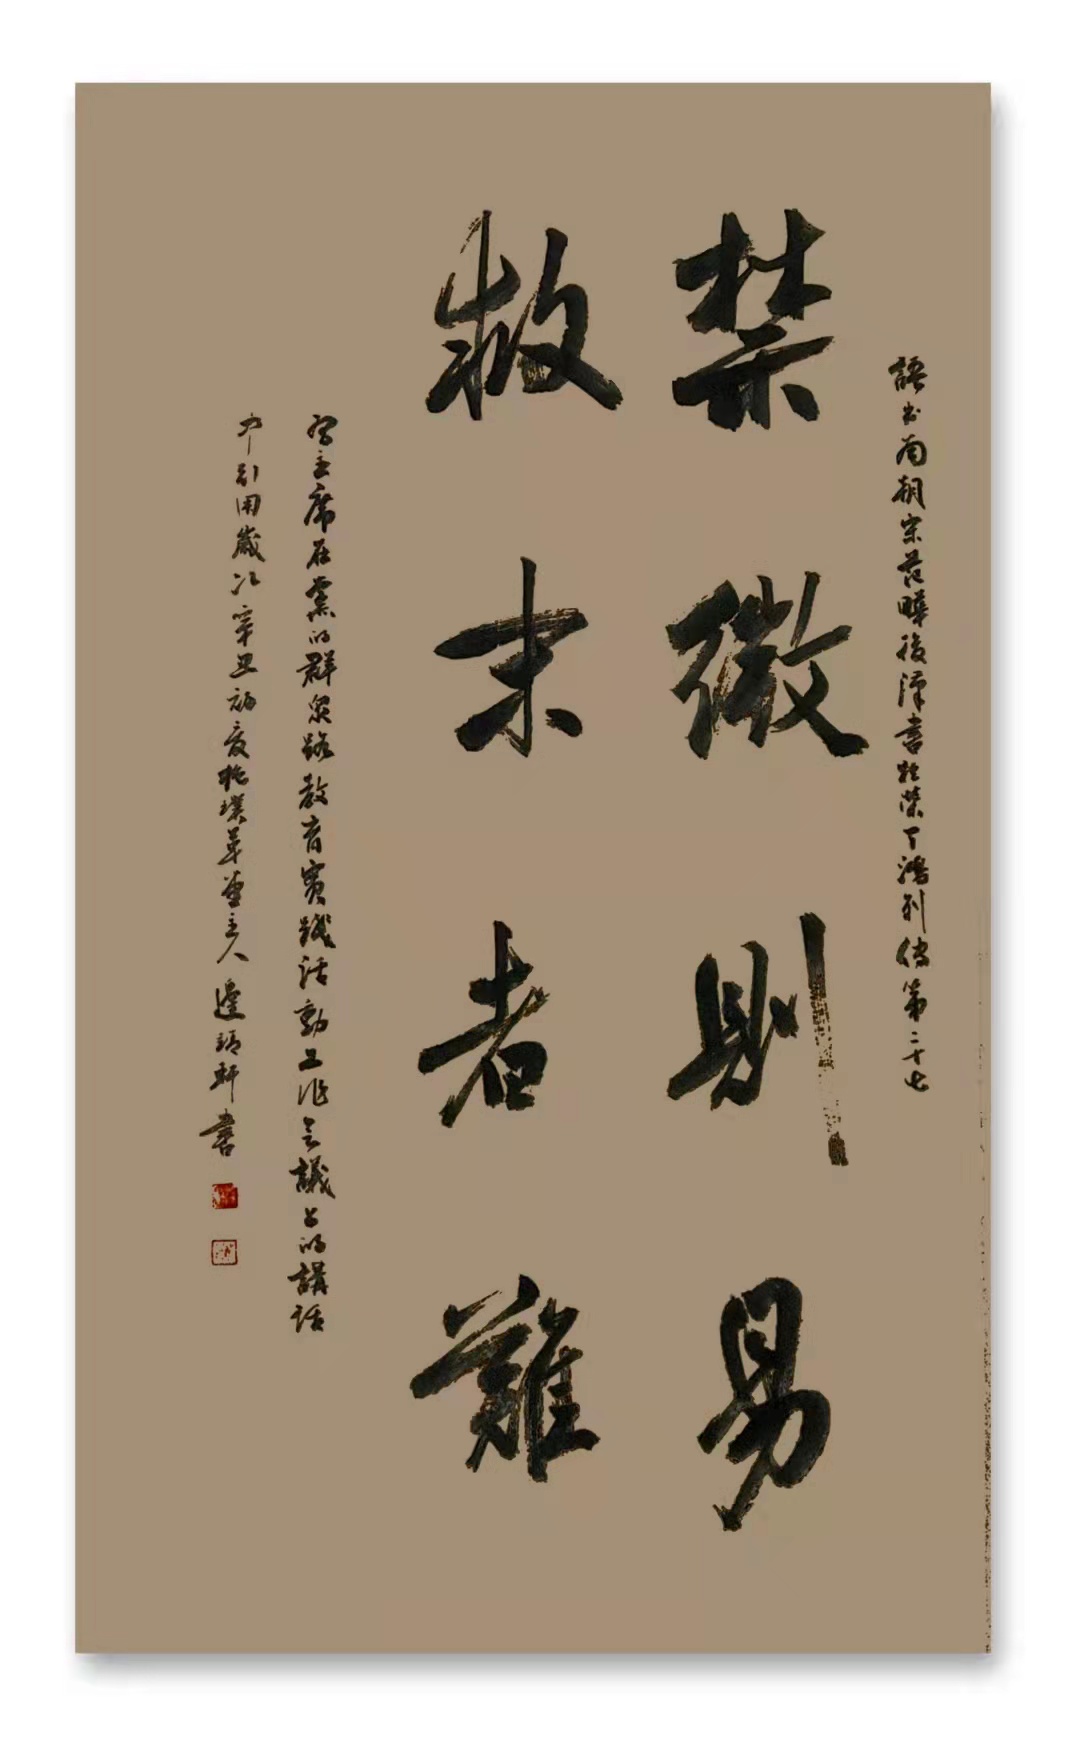 語出南朝宋范曄後漢書桓榮丁鴻列傳第二十七
禁微則易
救末者難
習主席在黨的群眾路教育實踐活動工作會議上的講話
中引用歲次辛丑初夏抱璞草堂主人邊靖軒書